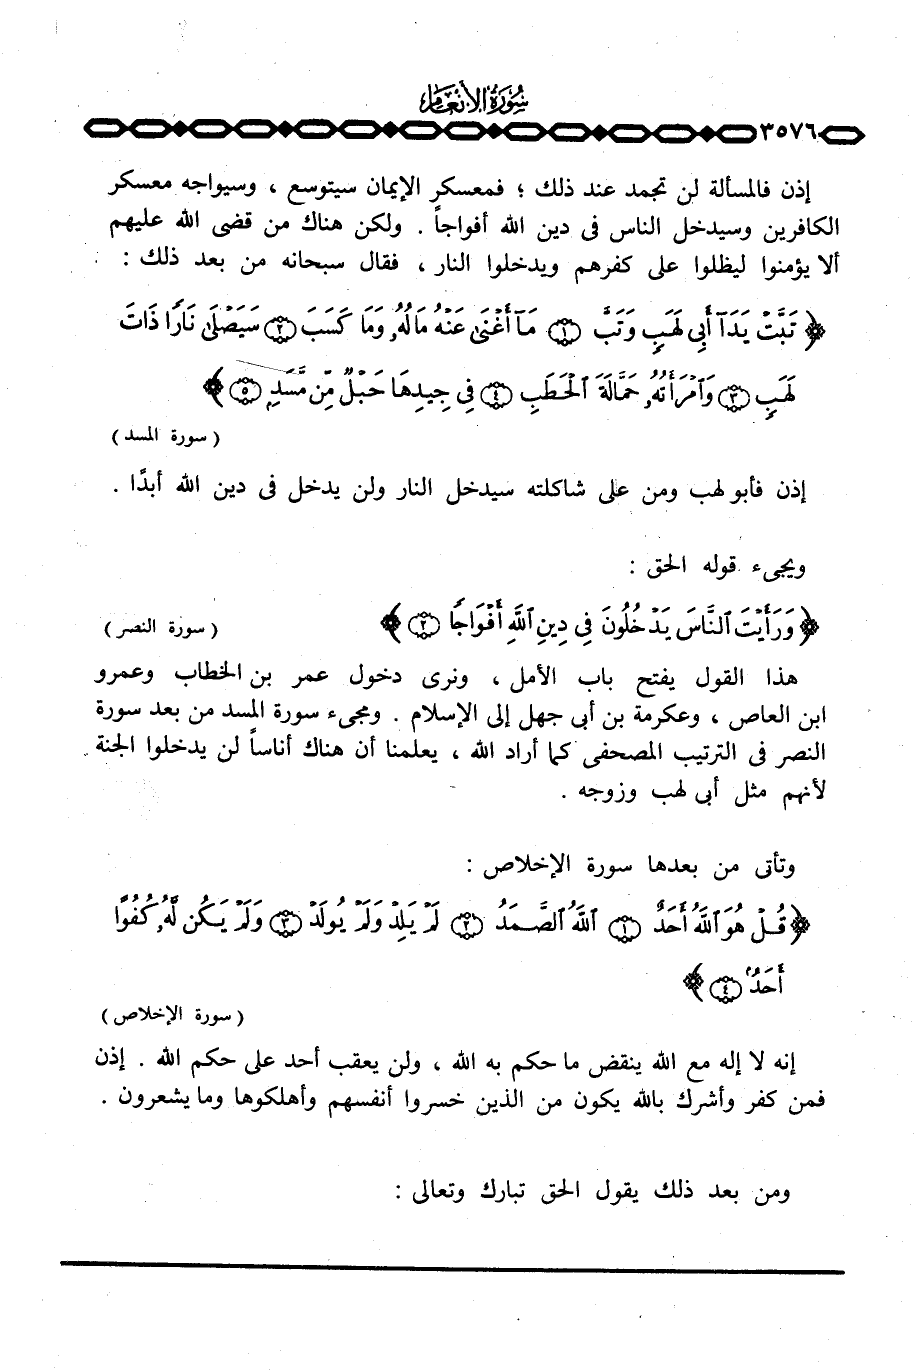 سورة الأنعام
٣٥٧٦
إذن فالمسألة لن تجمد عند ذلك ؛ فمعسكر الإيمان سيتوسع ، وسيواجه معسكر
الكافرين وسيدخل الناس فى دين الله أفواجاً . ولكن هناك من قضى الله عليهم
ألا يؤمنوا ليظلوا على كفرهم ويدخلوا النار ، فقال سبحانه من بعد ذلك :
﴿ تَبَّتْ يَدَآ أَبِى لَهَبٍ وَتَبَّ ۝١ مَآ أَغْنَىٰ عَنْهُ مَالُهُۥ وَمَا كَسَبَ ۝٢ سَيَصْلَىٰ نَارًا ذَاتَ
لَهَبٍ ۝٣ وَٱمْرَأَتُهُۥ حَمَّالَةَ ٱلْحَطَبِ ۝٤ فِى جِيدِهَا حَبْلٌ مِّن مَّسَدٍۭ ۝٥ ﴾
( سورة المسد )
إذن فأبو لهب ومن على شاكلته سيدخل النار ولن يدخل فى دين الله أبدًا .
ويجىء قوله الحق :
﴿ وَرَأَيْتَ ٱلنَّاسَ يَدْخُلُونَ فِى دِينِ ٱللَّهِ أَفْوَاجًا ۝٢ ﴾
( سورة النصر )
هذا القول يفتح باب الأمل ، ونرى دخول عمر بن الخطاب وعمرو
ابن العاص ، وعكرمة بن أبى جهل إلى الإسلام . ومجىء سورة المسد من بعد سورة
النصر فى الترتيب المصحفى كما أراد الله ، يعلمنا أن هناك أناساً لن يدخلوا الجنة
لأنهم مثل أبى لهب وزوجه .
وتأتى من بعدها سورة الإخلاص :
﴿ قُلْ هُوَ ٱللَّهُ أَحَدٌ ۝١ ٱللَّهُ ٱلصَّمَدُ ۝٢ لَمْ يَلِدْ وَلَمْ يُولَدْ ۝٣ وَلَمْ يَكُن لَّهُۥ كُفُوًا
أَحَدٌۢ ۝٤ ﴾
( سورة الإخلاص )
إنه لا إله مع الله ينقض ما حكم به الله ، ولن يعقب أحد على حكم الله . إذن
فمن كفر وأشرك بالله يكون من الذين خسروا أنفسهم وأهلكوها وما يشعرون .
ومن بعد ذلك يقول الحق تبارك وتعالى :